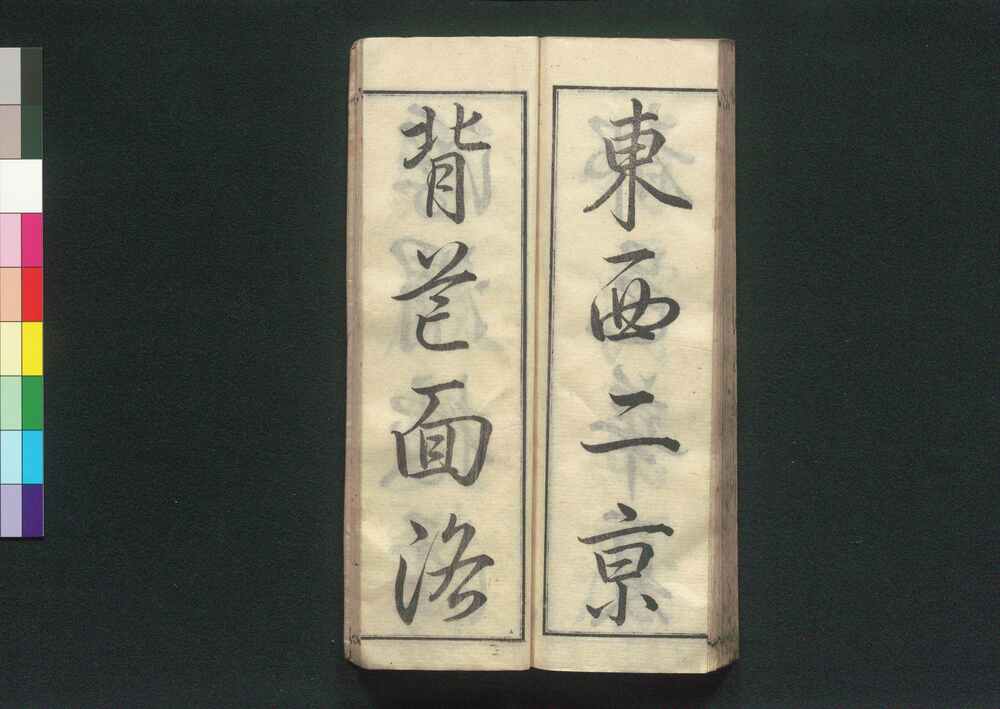 東西二京
背芒面洛